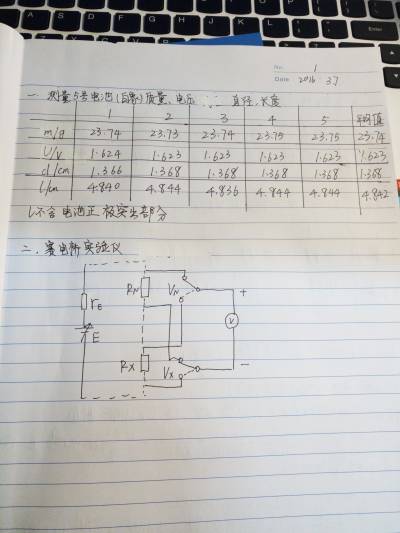 No. 1
Date 2016 3.7
一、测量5号电池(自备)质量、电压、直径、长度
1 2 3 4 5 平均值
m/g 23.74 23.73 23.74 23.75 23.75 23.74
U/V 1.624 1.623 1.623 1.623 1.623 1.623
d/cm 1.366 1.368 1.368 1.368 1.368 1.368
l/cm 4.840 4.844 4.836 4.844 4.844 4.842
l不含电池正极突出部分
二、 电桥实验仪
RN VN +
rE V
E
RX VX -